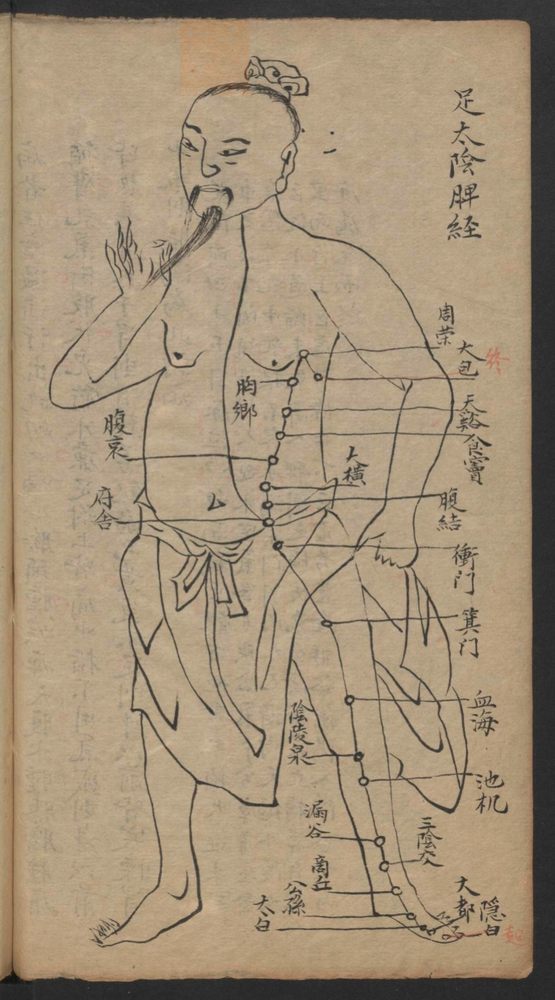 足太陰脾経
周荣
大包
终
胸鄉
天谿
食竇
腹哀
大横
府舍
腹结
衝门
箕门
血海
陰陵泉
池机
漏谷
三陰交
商丘
公孫
太白
大都
隠白
起